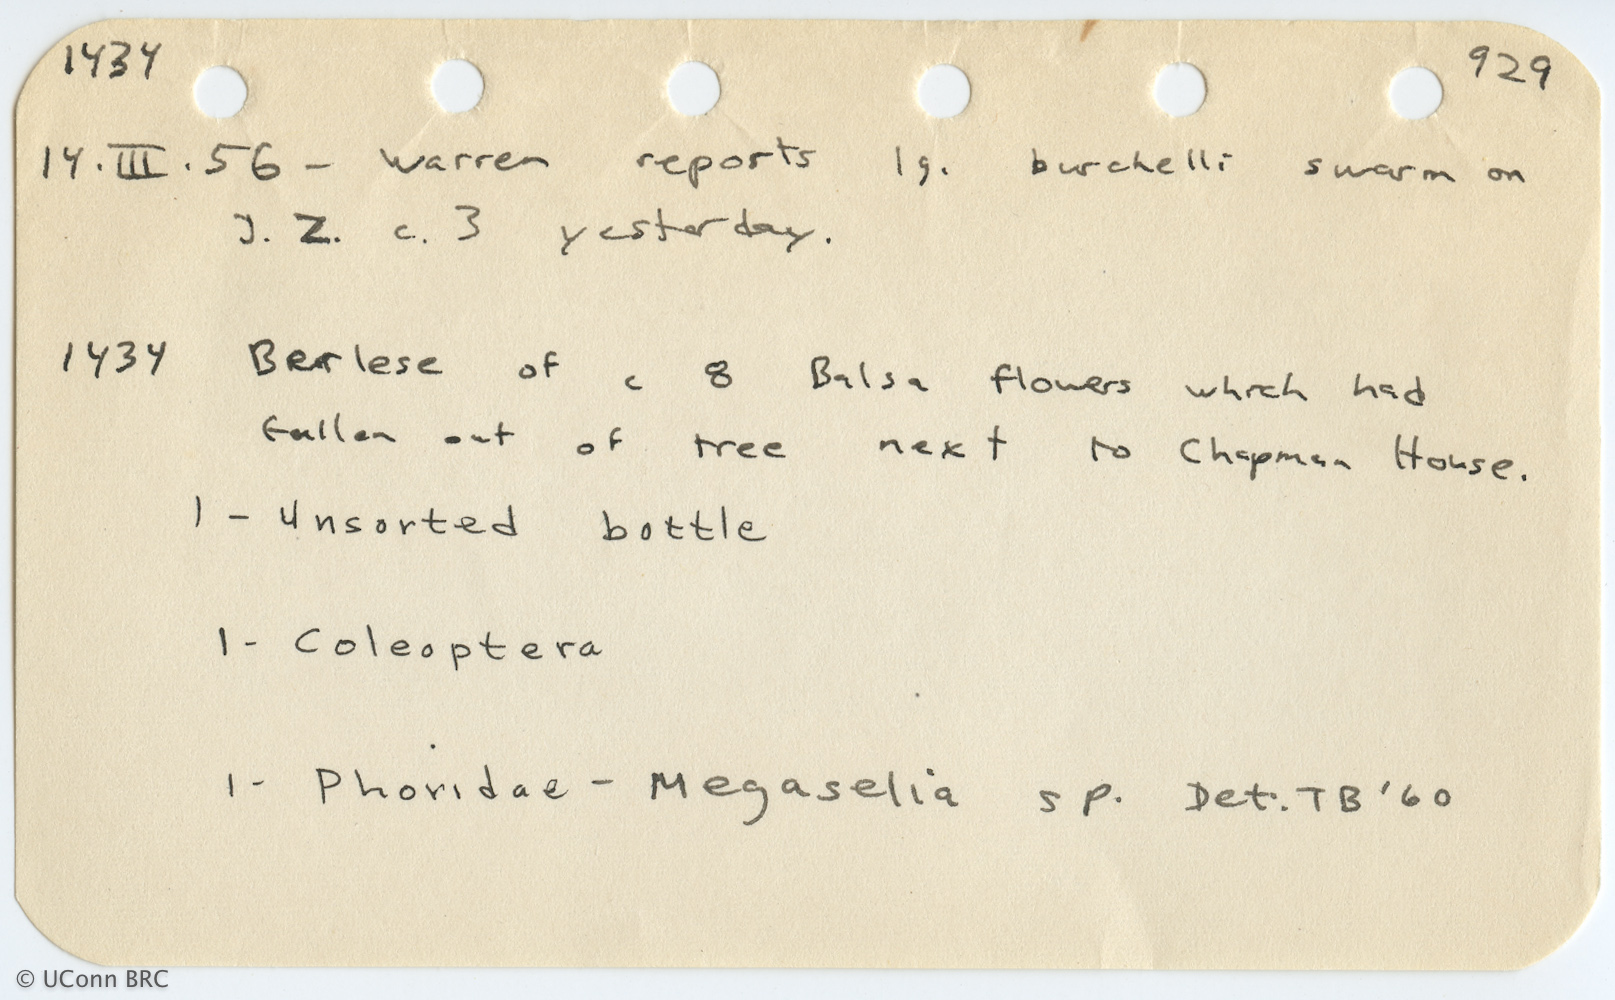 1434 929
14.III.56 - Warren reports lg. burchelli swarm on
J. Z. c. 3 yesterday.
1434 Berlese of c 8 Balsa flowers which had
fallen out of tree next to Chapman House.
1 - Unsorted bottle
1 - Coleoptera
1 - Phoridae - Megaselia sp. Det. TB '60
© UConn BRC